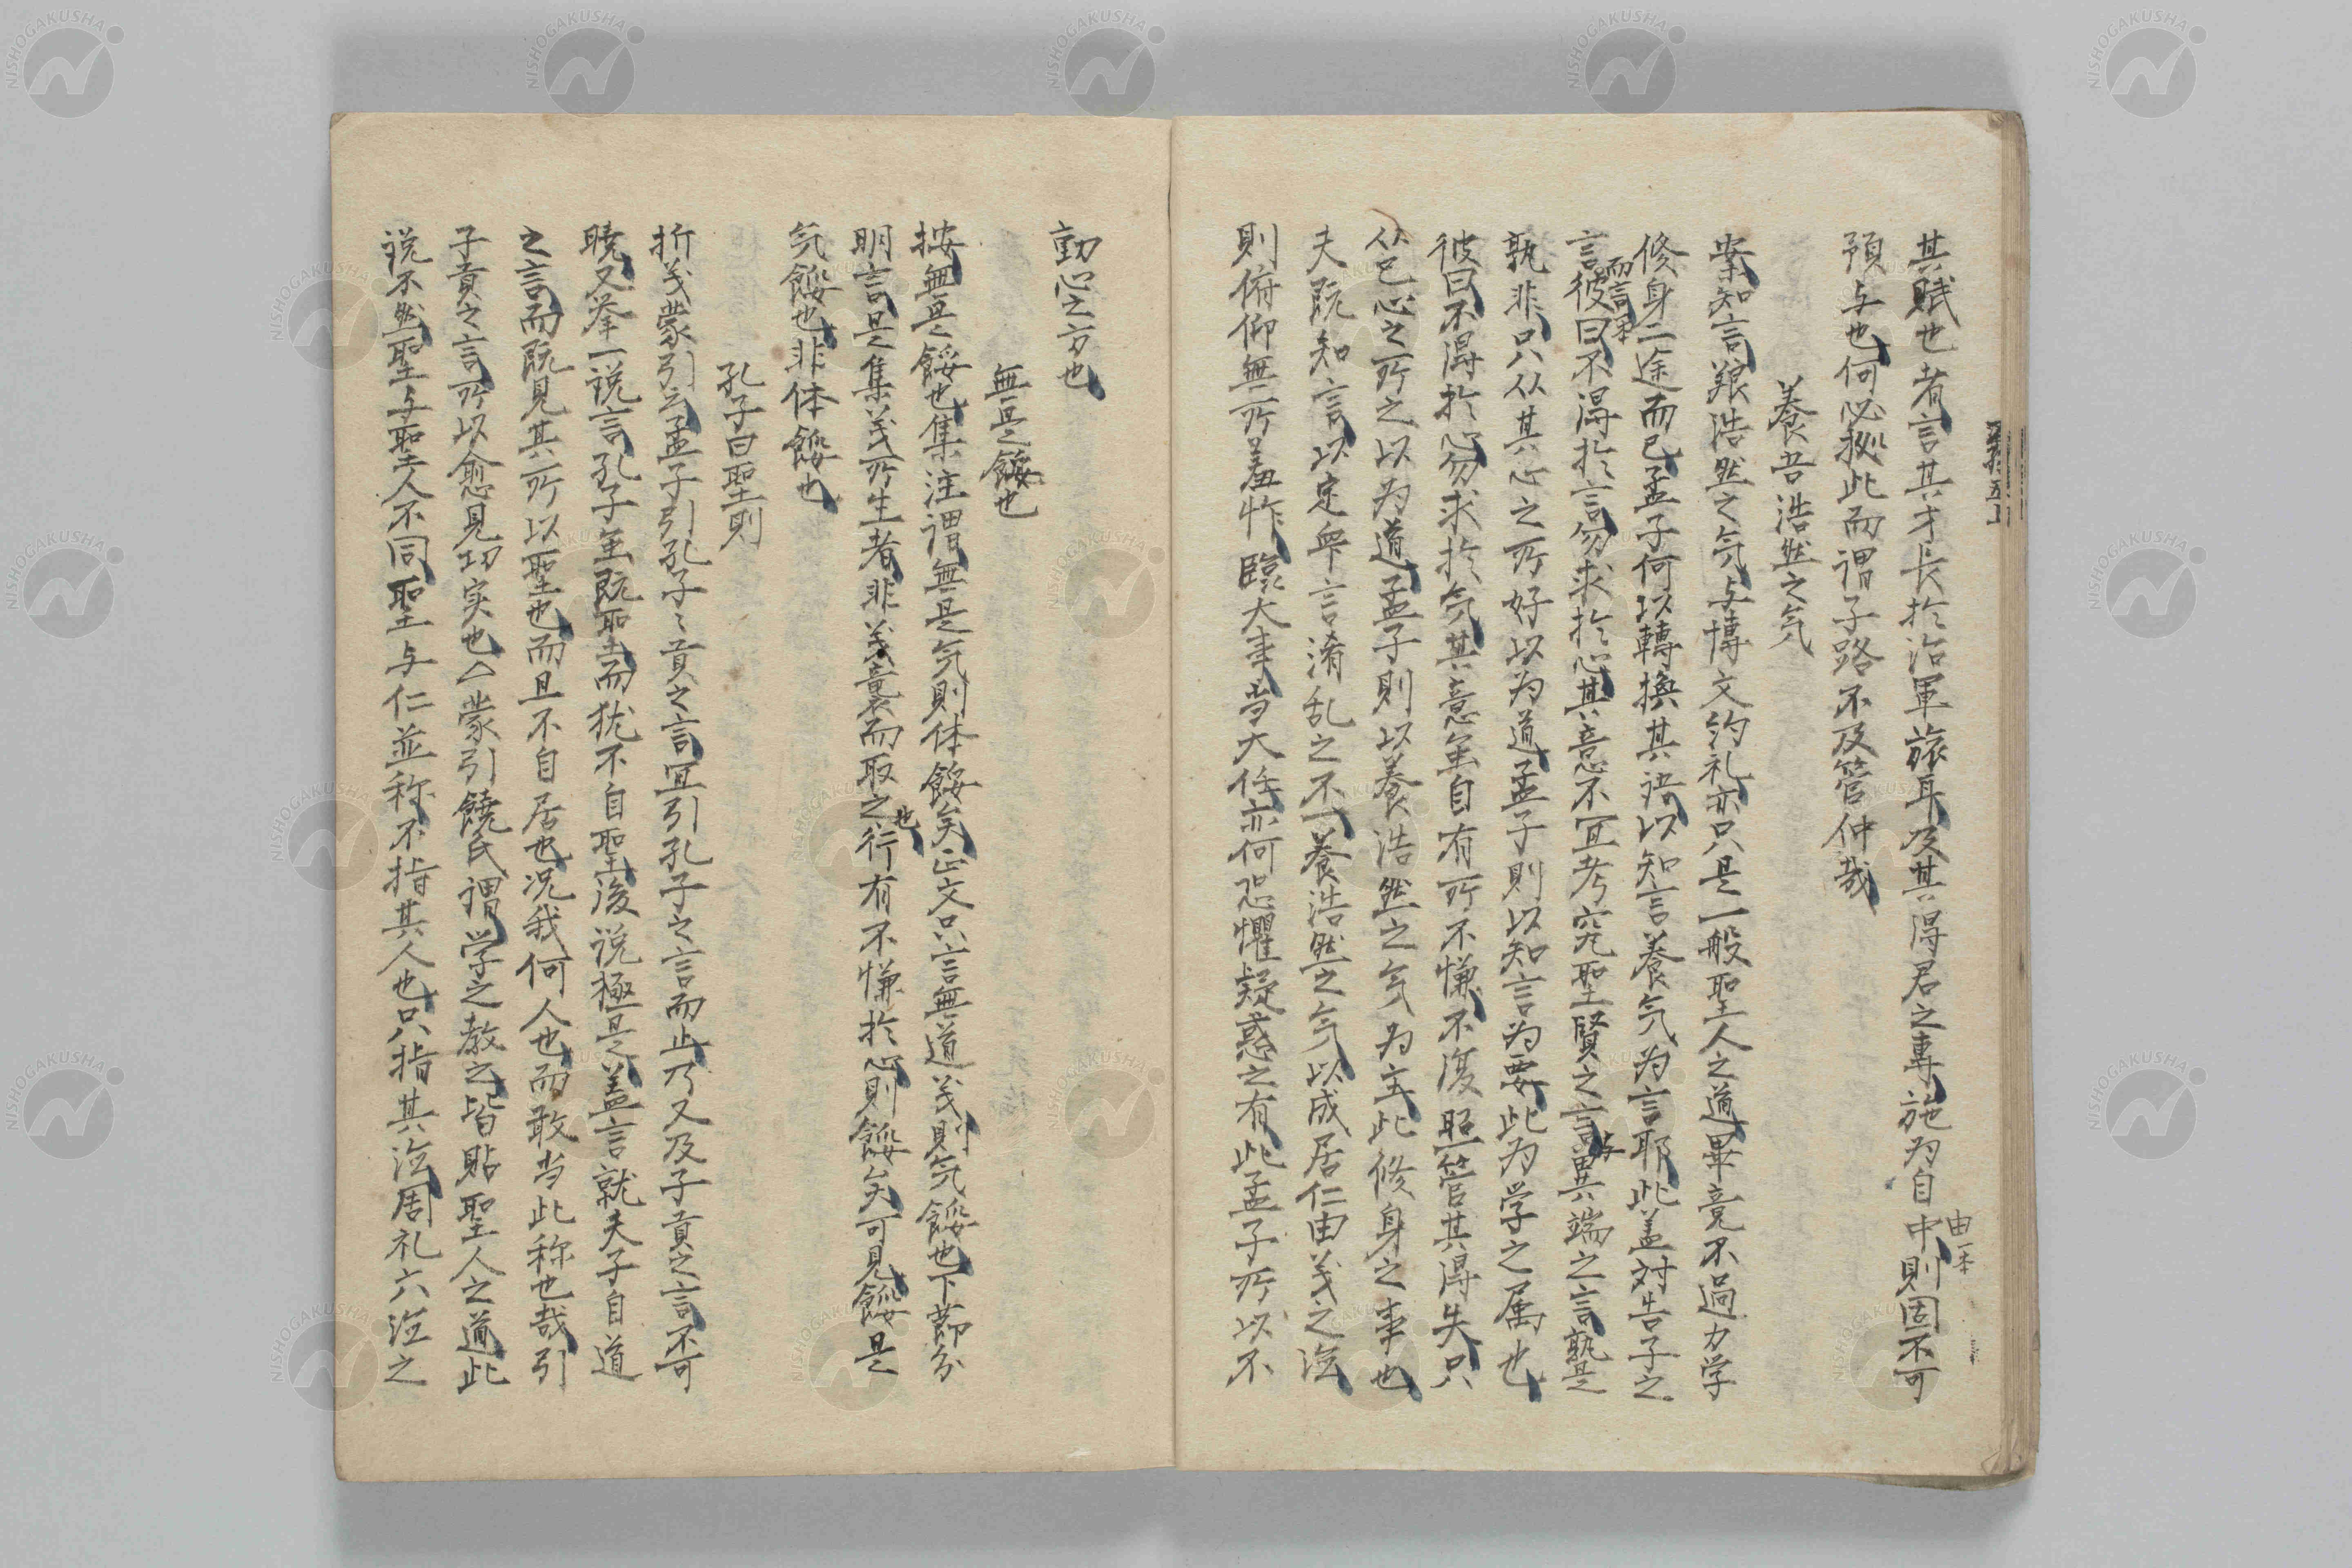 其賦也者言其才長於治軍旅耳及其得君之專施为自中則固不可
由一本
預与也何必拟此而謂子路不及管仲哉
養吾浩然之気
案知言養浩然之気与博文約礼亦只是一般聖人之道畢竟不過力学
修身二途而已孟子何以轉換其語以知言養気为言耶此盖对告子之
言彼曰不得於言勿求於心其意不冝考究聖賢之言与異端之言孰是
而言一本
孰非只从其心之所好以为道孟子則以知言为要此为学之属也
彼曰不得於心勿求於気其意虽自有所不慊不復照管其得失只
从己心之所之以为道孟子則以養浩然之気为主此修身之事也
夫既知言以定衆言淆乱之不一養浩然之気以成居仁由义之法
則俯仰無所羞怍臨大事当大任亦何恐懼疑惑之有此孟子所以不
動心之方也
無是餒也
按無是餒也集注謂無是気則体餒矣正文只言無道义則気餒也下節分
明言是集义所生者非义襲而取之也行有不慊於心則餒矣可見餒是
気餒也非体餒也
孔子曰聖則
折义蒙引云孟子引孔子子貢之言冝引孔子之言而止乃又及子貢之言不可
曉又举一说言孔子虽既聖而犹不自聖後说極是盖言就夫子自道
之言而既見其所以聖也而且不自居也况我何人也而敢当此称也哉引
子貢之言所以愈見切实也△蒙引饒氏謂学之教之皆貼聖人之道此
说不然聖与聖人不同聖与仁並称不指其人也只指其法周礼六法之
NISHOGAKUSHA